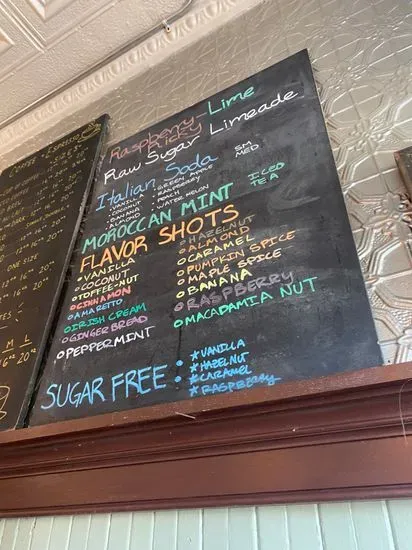 COFFEE • ESPRESSO
12oz 16oz 20oz
ONE SIZE
M L
Raspberry-Lime
Ricky
Raw Sugar Limeade
Italian Soda
SM
MED
• VANILLA • GREEN APPLE
• COCONUT • RASPBERRY
• BANANA • PEACH
• ALMOND • WATERMELON
MOROCCAN MINT ICED
TEA
FLAVOR SHOTS
VANILLA
COCONUT
TOFFEE-NUT
CINNAMON
AMARETTO
IRISH CREAM
GINGERBREAD
PEPPERMINT
HAZELNUT
ALMOND
CARAMEL
PUMPKIN SPICE
MAPLE SPICE
BANANA
RASPBERRY
MACADAMIA NUT
SUGAR FREE : ★ VANILLA
★ HAZELNUT
★ CARAMEL
★ RASPBERRY